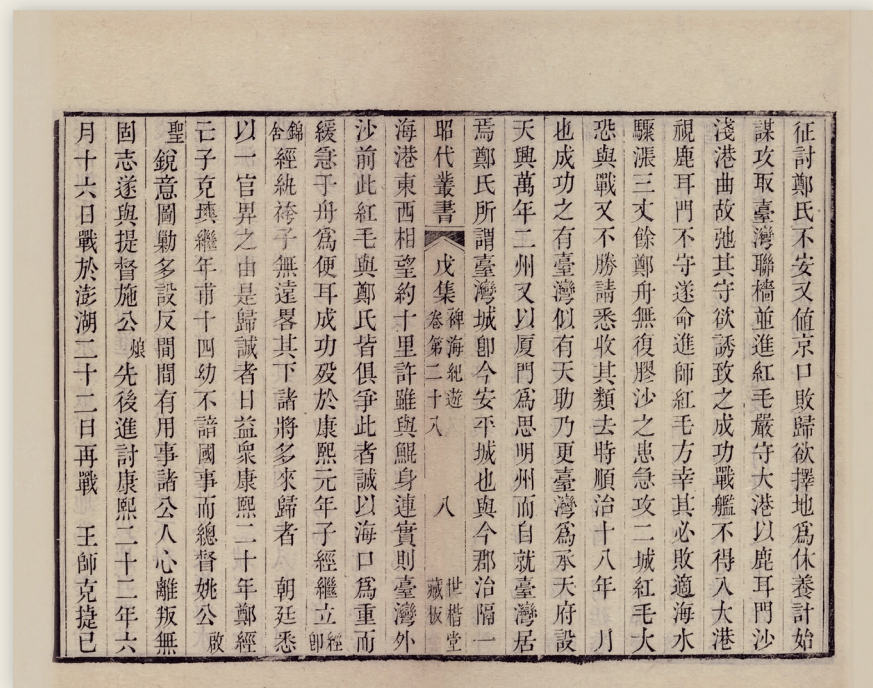 征討鄭氏不安又値京口敗歸欲擇地爲休養計始
謀攻取臺灣聯檣並進紅毛嚴守大港以鹿耳門沙
淺港曲故弛其守欲誘致之成功戰艦不得入大港
視鹿耳門不守遂命進師紅毛方幸其必敗適海水
驟漲三丈餘鄭舟無復膠沙之患急攻二城紅毛大
恐與戰又不勝請悉收其類去時順治十八年 月
也成功之有臺灣似有天助乃更臺灣爲承天府設
天興萬年二州又以厦門爲思明州而自就臺灣居
焉鄭氏所謂臺灣城卽今安平城也與今郡治隔一
昭代叢書 戊集 裨海紀遊 卷第二十八 八 世楷堂 藏板
海港東西相望約十里許雖與鯤身連實則臺灣外
沙前此紅毛與鄭氏皆俱爭此者誠以海口爲重而
緩急于舟爲便耳成功殁於康熙元年子經繼立經卽
錦舍經紈袴子無遠畧其下諸將多來歸者 朝廷悉
以一官昇之由是歸誠者日益衆康熙二十年鄭經
亡子克塽繼年甫十四幼不諳國事而總督姚公啟
聖銳意圖勦多設反間間有用事諸公人心離叛無
固志遂與提督施公烺先後進討康熙二十二年六
月十六日戰於澎湖二十二日再戰 王師克捷已